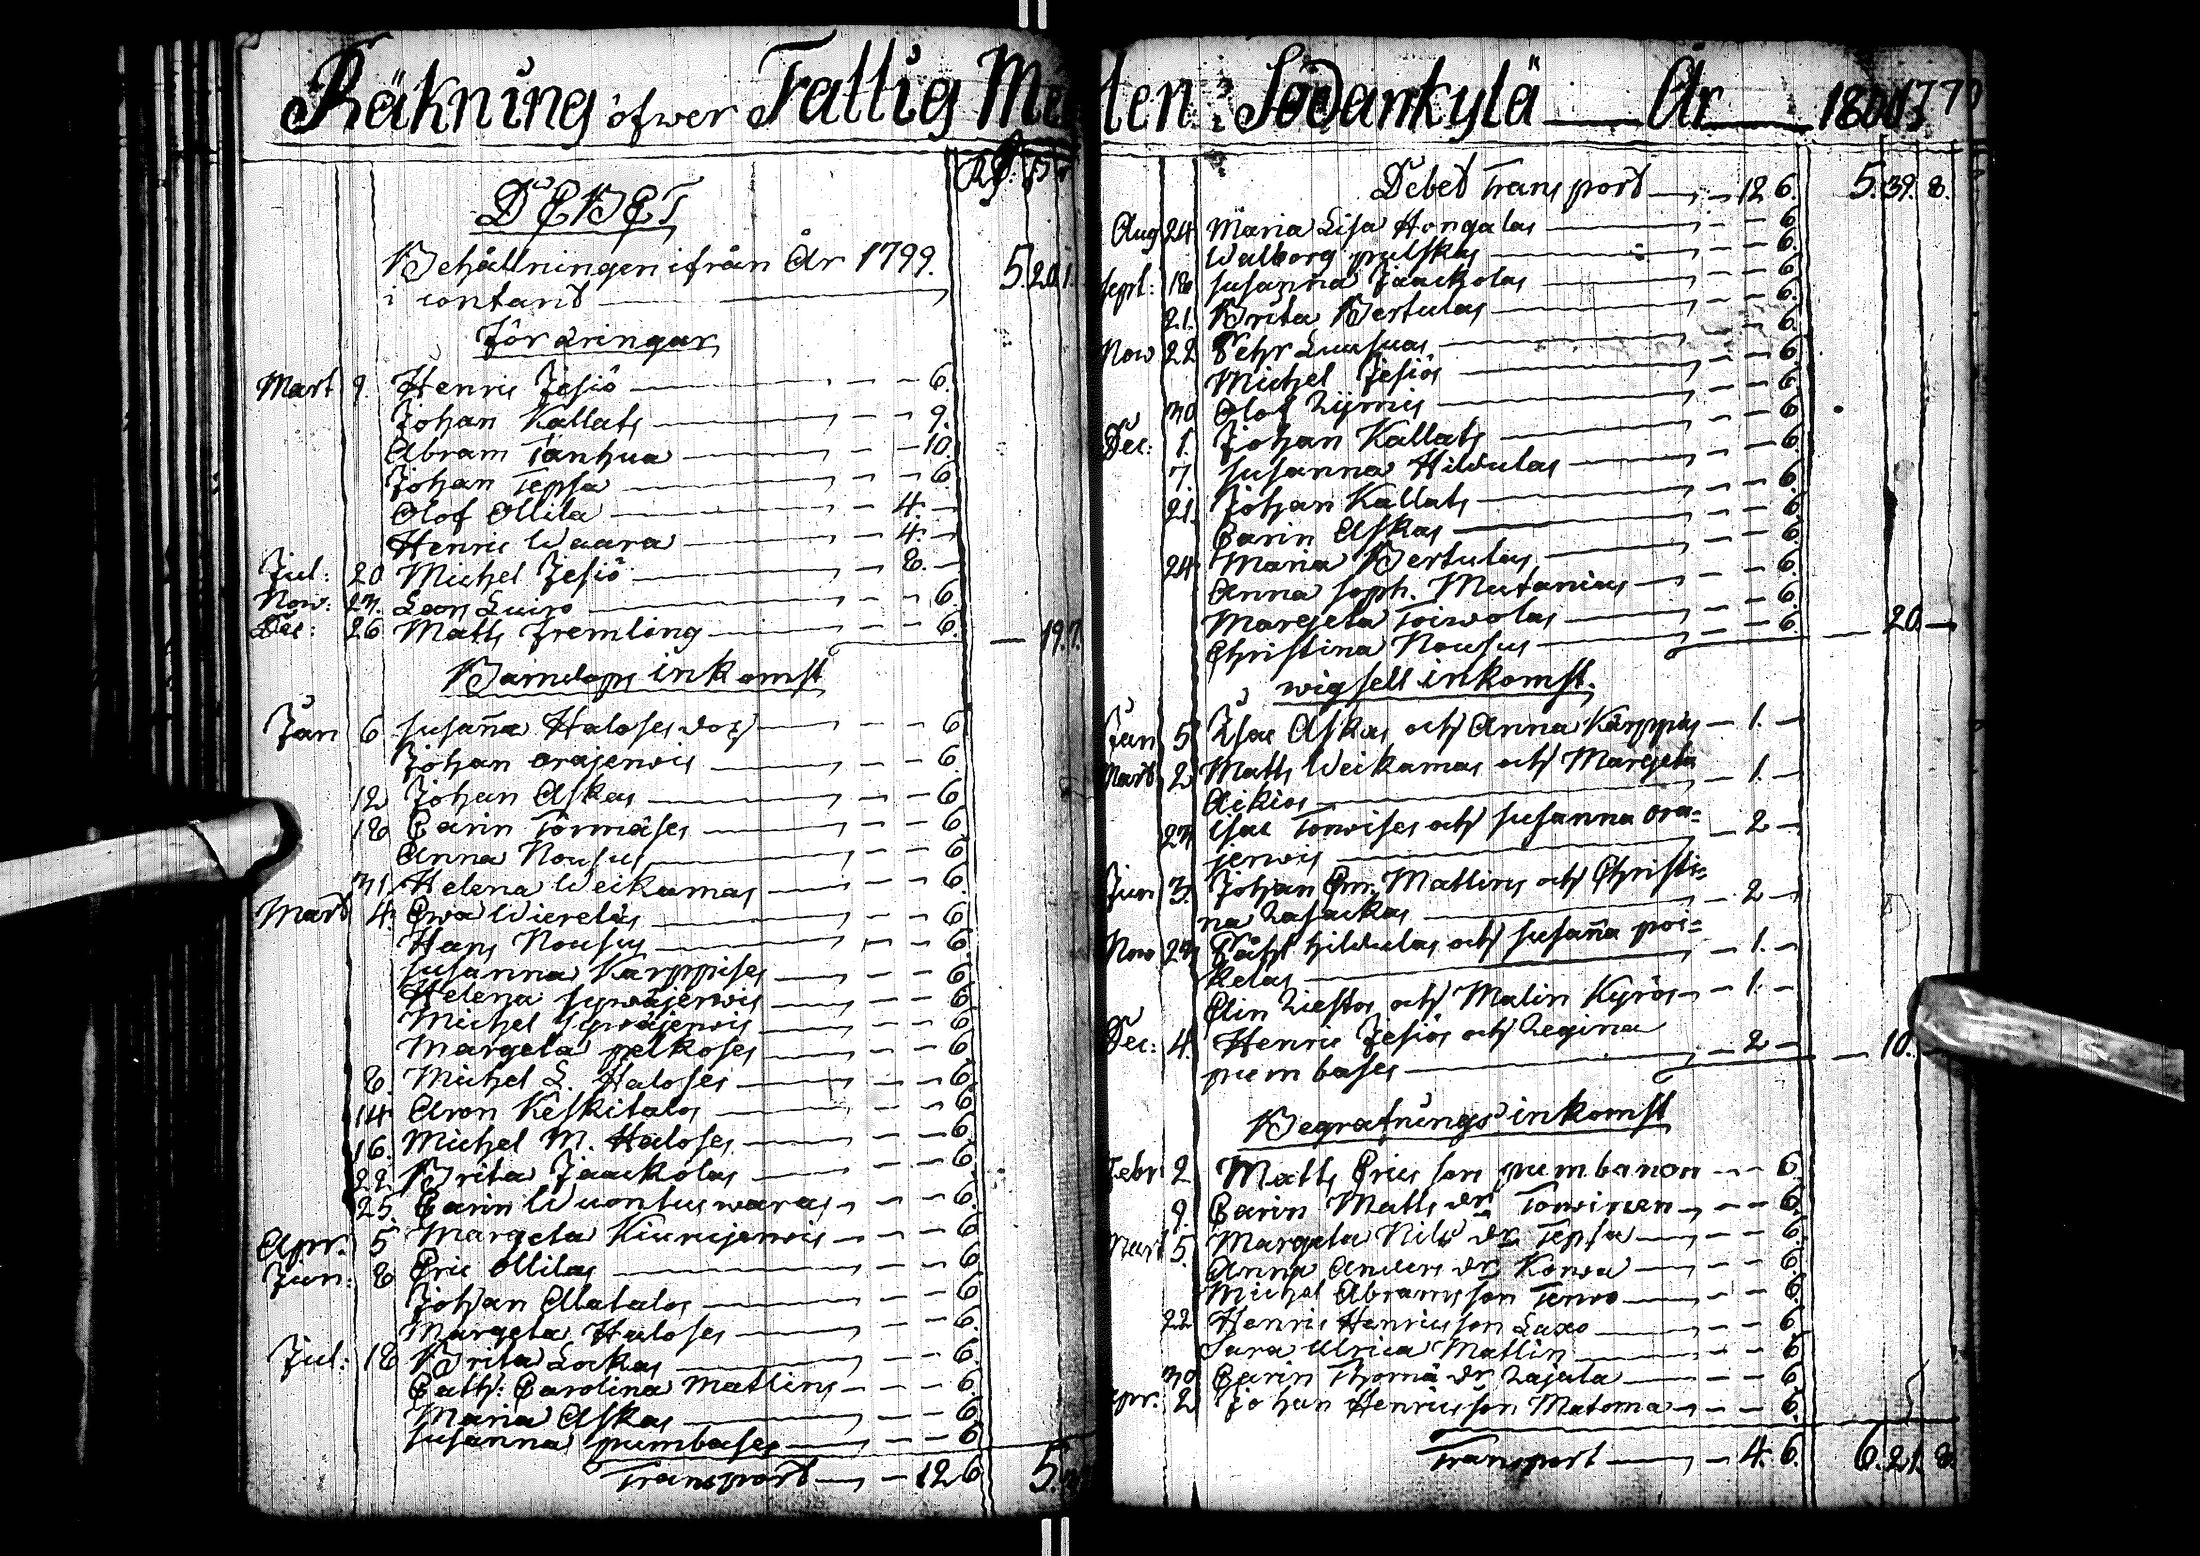 Räkning öfwer Fattig Me
DEBET
Behållningen ifrån År 1799.
i contant 5. 20. 1.
Föräringar
Mart 9. Henric Jesiö 6.
Johan Kallats 9.
Abram Tanhua 10.
Johan Tepsa 6.
Olof Ollila 4.
Henric Waara 4.
Jul: 20 Michel Jesiö 8.
Now: 23. Lars Luiro 6.
Dec: 26 Matts Fremling 6. 19. 7.
Barndops inkomst
Jan 6 Susana Haloses 6
Johan Orajerwis 6
12 Johan Askas 6
18 Carin Törmäses 6
Anna Nousus 6
31. Helena Weikamas 6
Mart 4. Ewa Wierelas 6
Hans Nousus 6
Susanna Karppises 6
Helena Sywäjerwis 6
Michel Sywäjerwis 6
Margeta pelkoses 6
8. Michel L. Haloses 6
14 Aron Keskitalos 6
16. Michel M. Haloses 6
22 Brita Jaackolas 6
25. Carin Wuontuswaras 6
Apr. 5 Margeta Kiurujerwis 6
Jun: 8 Eric Ollilas 6
Johan Alatalos 6
Margeta Haloses 6
Jul: 18 Brita Lockas 6
Cath: Carolina Matlins 6
Maria Askas 6
Susanna pumbases 6
Transport 12 6 5.
ten i Sodankylä År 1800
Debet Transport 12 6. 5. 39. 8.
Aug 24 Maria Lisa Hongalas 6
Walborg pulskas 6
Sept: 18 Susanna Jaackolas 6
21. Brita Bertulas 6
Now 22 Pehr Luusuas 6
Michel Jesiös 6
30 Olof 6
Dec: 1. Johan Kallats 6
7. Susanna Hildulas 6
21. Johan Kallats 6
Carin Askas 6
24 Maria Bertulas 6
Anna Soph. Mutanius 6
Margeta Toiwolas 6
Christina Nousus 6 20.
wigsell inkomst.
Jan 5 Isac Askas och Anna Karppis 1.
Mart 2 Matts Weikamas och Margeta
Aikios 1.
23 Isac Torwises och Susanna Ora=
jerwis 2
Jun 3. Johan Em. Matlins och Christi=
na 2
Now 23 Påhl hildulas och Susana poi=
kelas 1.
Elin och Malin Kyrös 1.
Dec: 4. Henric Jesiös och Regina
pumbases 2 10.
Begrafnings inkomst
Febr 2 Matts Ericsson pumbanen 6.
9. Carin Matts dr Torwinen 6.
Mart 5. Margeta Nils dr Tepsa 6
Anna Anders dr Korwa 6
Michel Abramsson Terwo 6
22 Henric Henricsson Laxo 6
Sara Ulrica Matlin 6
30 Carin Thoma dr Lajula 6
Apr. 2 Johan Henricsson Matoma 6.
Transport 4. 6. 6. 21. 8.